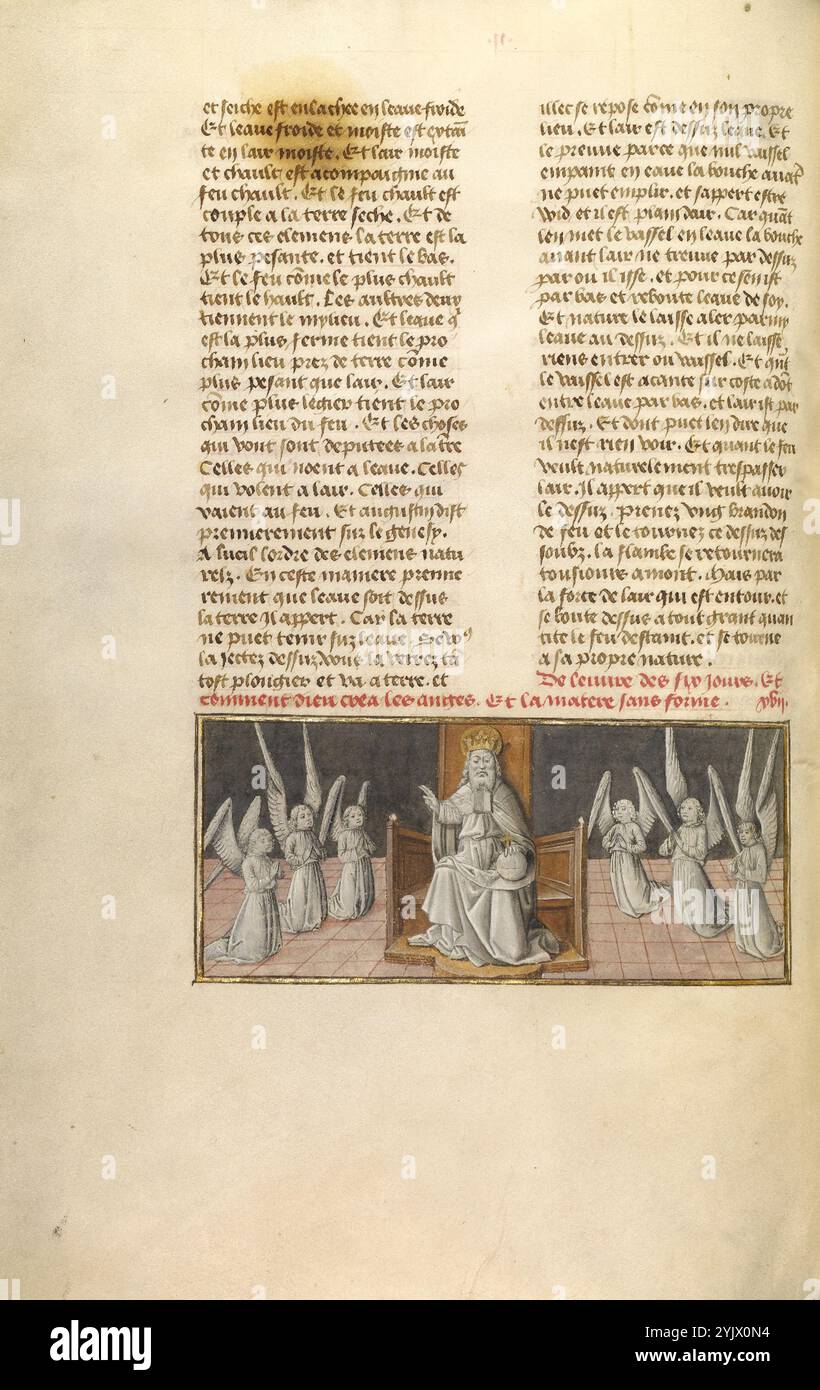 et seiche est enlachee en leaue froide
Et leaue froide et moiste est
te en lair moiste. Et lair moiste
et chault est acompaignie au
feu chault. Et le feu chault est
couple a la terre seche. Et de
tous ces elemens la terre est la
plus pesante. et tient le bas.
Et le feu cōme le plus chault
tient le hault. Les aultres deux
tiennent le mylieu. Et leaue q̄
est la plus ferme tient le pro
cham lieu prez de terre cōme
plus pesant que lair. Et lair
cōme plus legier tient le pro
cham lieu du feu. Et les choses
qui vont sont deputees a la
Celles qui noent a leaue. Celles
qui volent a lair. Celles qui
vaient au feu. Et augustin dist
premierement sur le genesy.
A lucil lordre des elemens natu
relz. En ceste maniere premie
rement que leaue soit dessus
la terre il appert. Car la terre
ne puet tenir suz leaue.
la jectez dessuz vous la verrez
tost plongier et va a terre. et
illec se repose cōme en son propre
lieu. Et lair est dessuz leaue. Et
le preuue par ce que nul vaissel
empaint en eaue la bouche auāt
ne puet emplir. et sappert estre
wid et il est plain dair. Car quāt
len met le vassel en leaue la bouche
auant lair ne treuue par dessuz
par ou il isse. et pour ce sen ist
par bas et reboute leaue de soy.
Et nature le laisse aler parmy
leaue au dessuz. Et il ne laisse
riens entrer ou vaissel. Et
le vaissel est acante sur coste adōt
entre leaue par bas. et lair ist par
dessuz. Et dont puet len dire que
il nest rien voir. Et quant le feu
veult naturelement trespasser
lair. Il appert que il veult auoir
le dessuz. prenez vng brandon
de feu et le tournez ce dessuz des
soubz. la flambe se retournera
tousiours amont. Mais par
la force de lair qui est entour. et
se boute dessus a tout grant quan
tite le feu destaint. et se tourne
a sa propre nature.
De leuure des six jours. Et
comment dieu crea les anges. Et la matere sans forme. xvii.
alamy
Image ID: 2YJX0N4
www.alamy.com